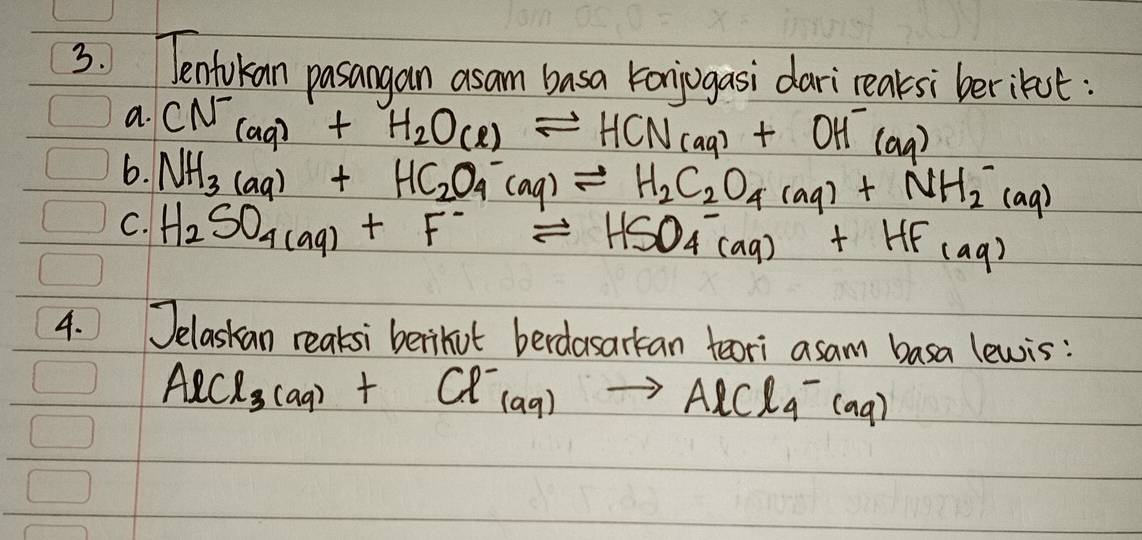 3. Tentukan pasangan asam basa konjugasi dari reaksi berikut:
a. CN⁻ (aq) + H₂O(l) ⇌ HCN (aq) + OH⁻ (aq)
b. NH₃ (aq) + HC₂O₄⁻ (aq) ⇌ H₂C₂O₄ (aq) + NH₂⁻ (aq)
c. H₂SO₄ (aq) + F⁻ ⇌ HSO₄⁻ (aq) + HF (aq)
4. Jelaskan reaksi berikut berdasarkan teori asam basa lewis:
AlCl₃ (aq) + Cl⁻ (aq) → AlCl₄⁻ (aq)